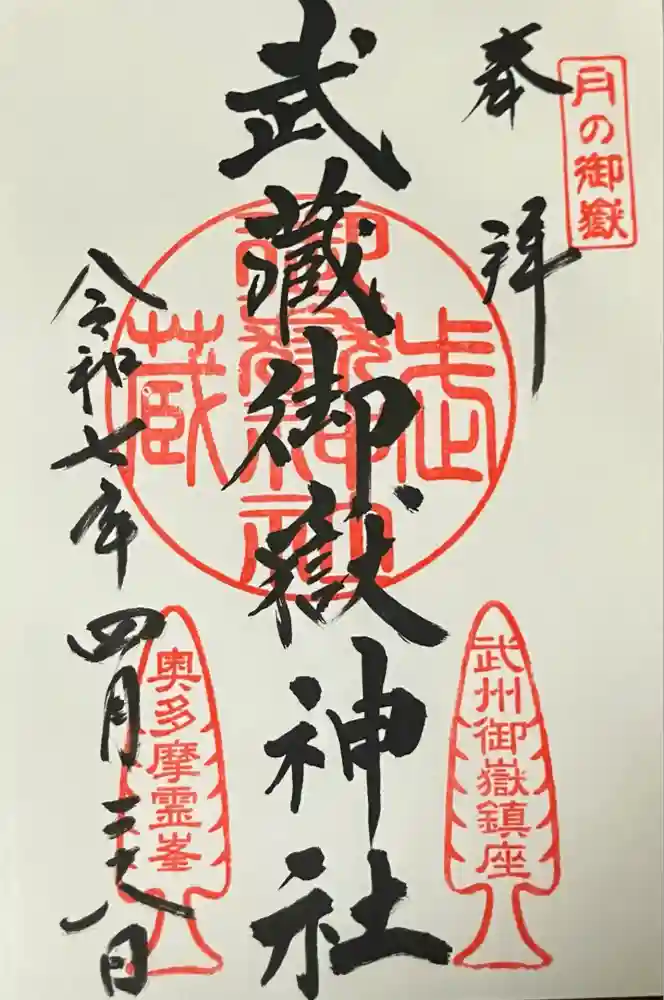 月の御嶽
奉拝
武蔵御嶽神社
令和七年四月二十八日
武州御嶽鎮座
奥多摩霊峯
武
蔵